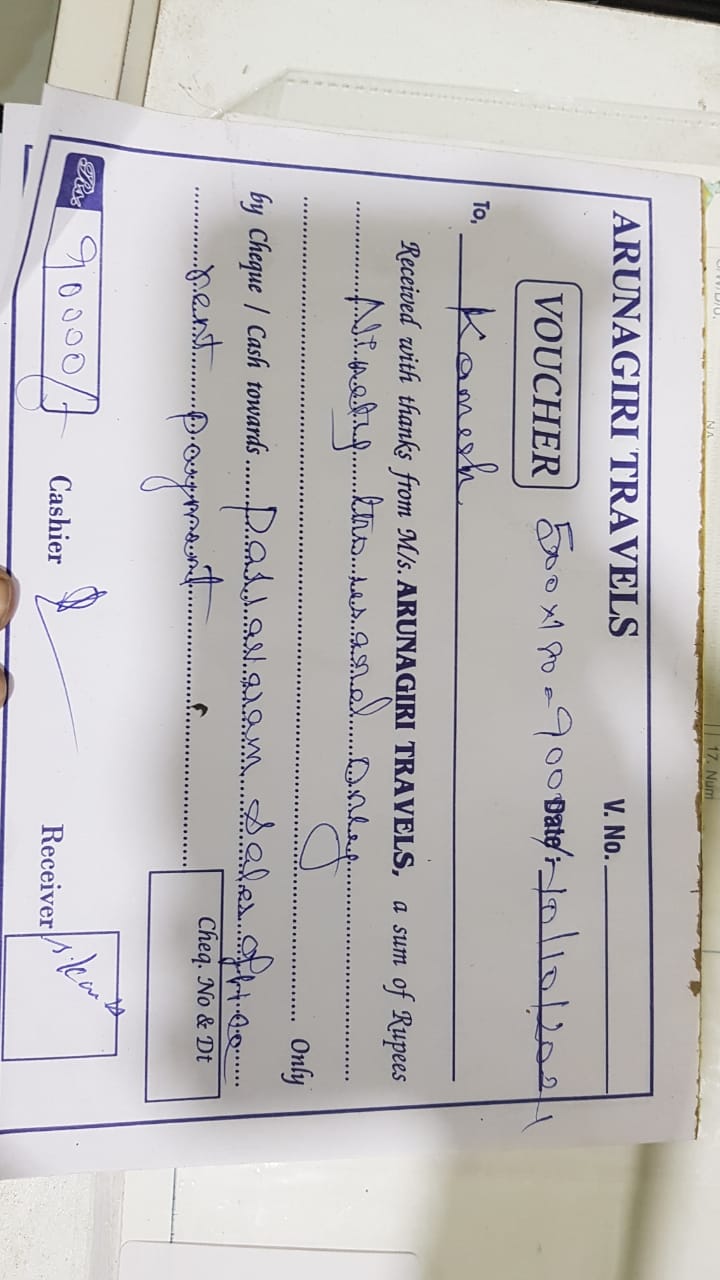 ARUNAGIRI TRAVELS
V. No.
VOUCHER 500x180=900 Date : 10/10/202
To, Kamesh
Received with thanks from M/s. ARUNAGIRI TRAVELS, a sum of Rupees
Ninety thousand Only
Only
by Cheque / Cash towards Pallavaram Sales office
rent payment
Cheq. No & Dt
Rs. 90000/-
Cashier
Receiver
17. Num
NA